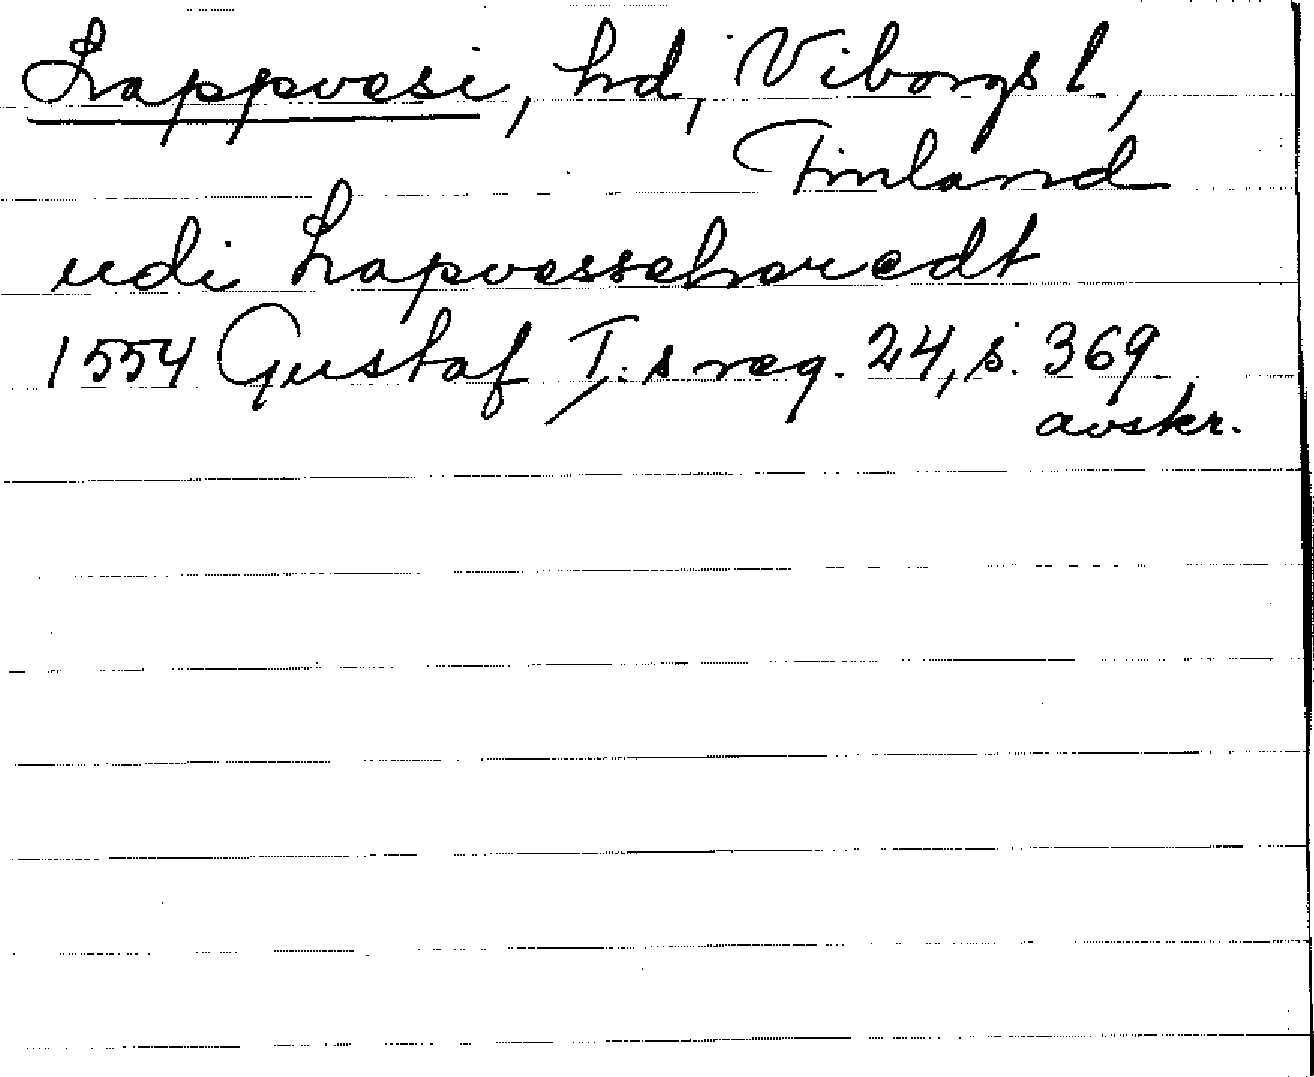 Lappvesi, hd, Viborgs l.,
Finland
udi Lapvesseheredt
1554 Gustaf I:s reg. 24, s. 369
avskr.